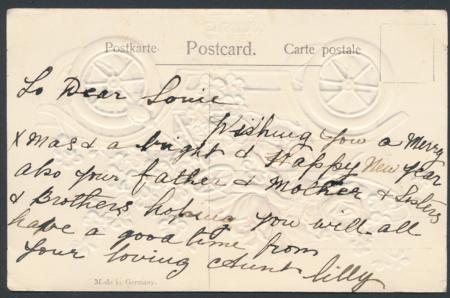 Postkarte Postcard. Carte postale
To Dear Louie
Wishing you a Merry
Xmas & a bright & Happy New Year
also your father & Mother & Sisters
& Brothers hoping you will all
have a good time from
your loving Aunt Lilly
Made in Germany.